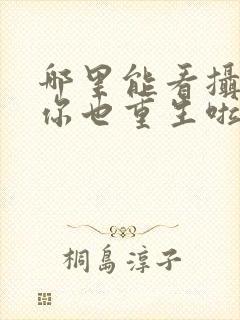 哪里能看攝
你也重生啦
桐島淳子